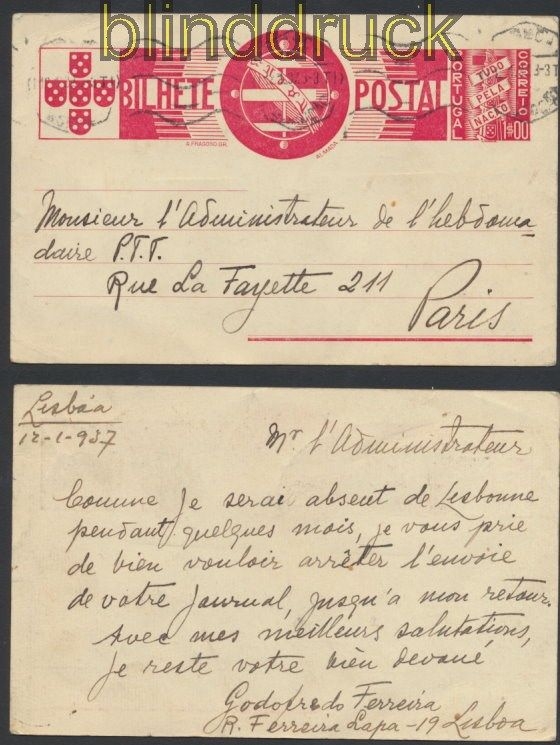 blinddruck
BILHETE POSTAL
PORTUGAL
CORREIO
TUDO
PELA
NAÇÃO
1$00
A. FRAGOSO. GR.
ALMADA
Monsieur l'Administrateur de l'hebdoma
daire P.T.T.
Rue La Fayette 211
Paris
Lisbôa
12-1-937
Mr l'Administrateur
Comme je serai absent de Lisbonne
pendant quelques mois, je vous prie
de bien vouloir arrêter l'envoie
de votre journal, jusqu'a mon retour.
Avec mes meilleurs salutations,
je reste votre bien devoué
Godofredo Ferreira
R. Ferreira Lapa-19 Lisboa